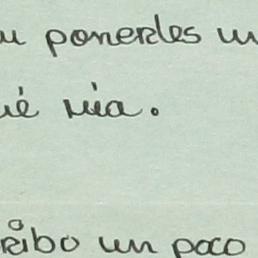 u ponerles un
ué mia.
ribo un poco